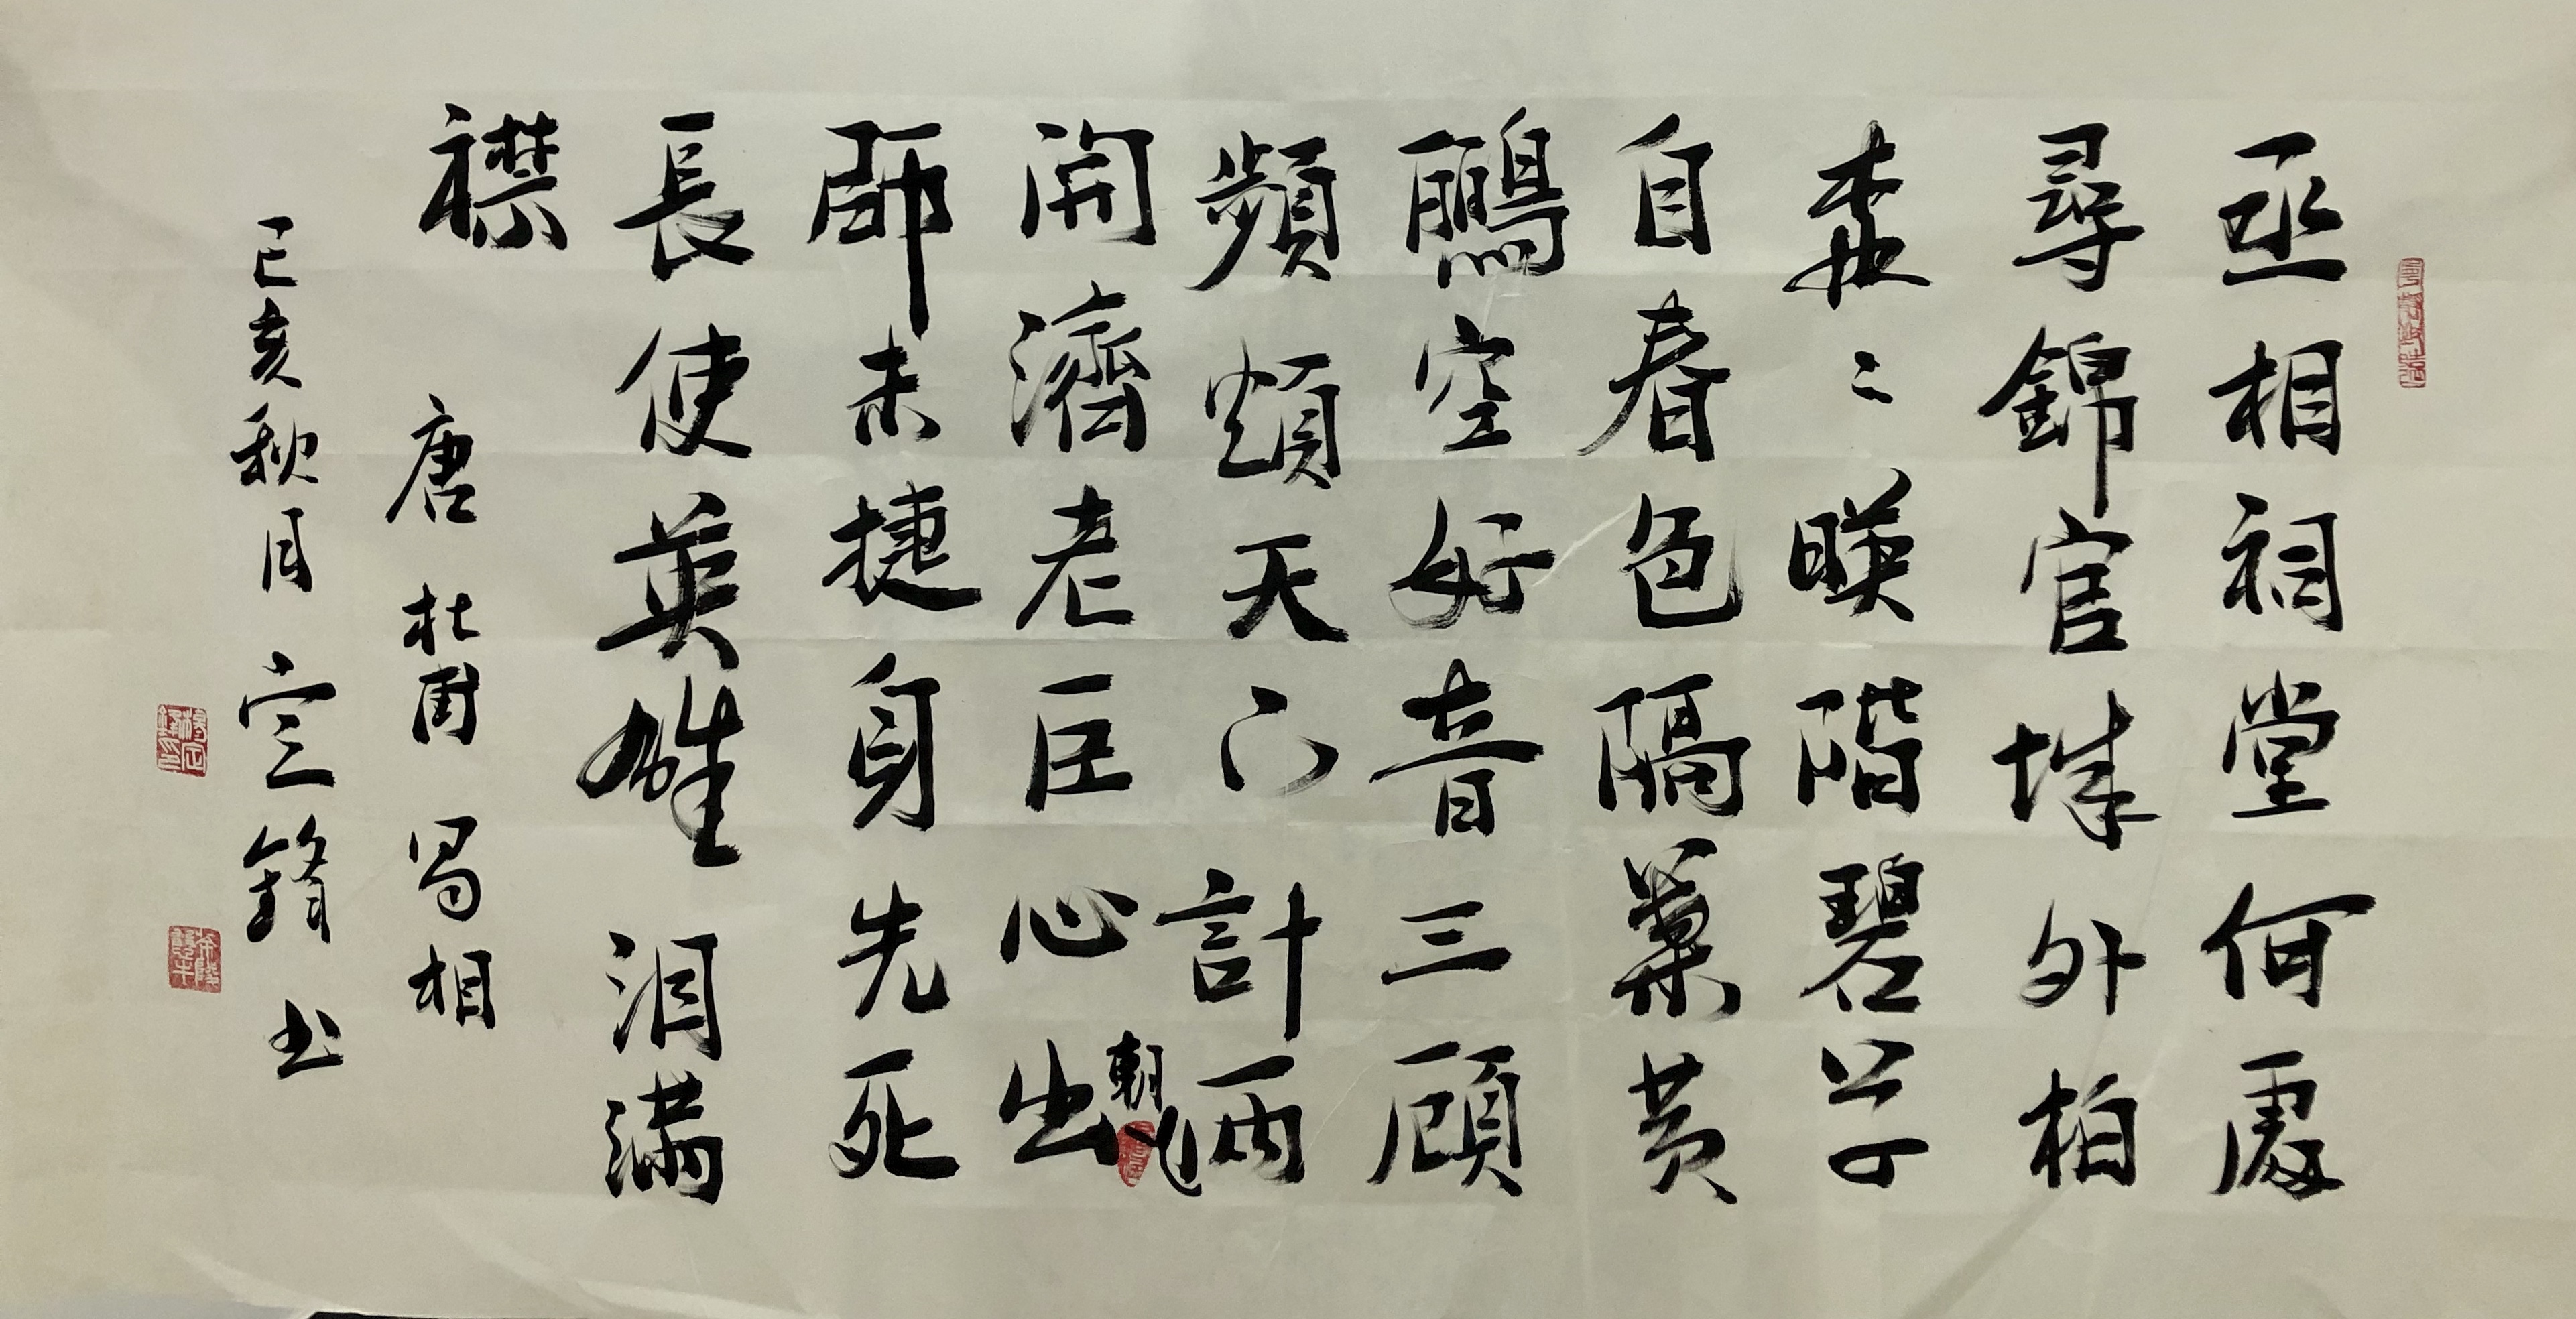 丞相祠堂何處
尋錦官城外柏
森〻暎階碧草
自春色隔葉黄
鸝空好音三顧
頻煩天下計兩
朝
開濟老臣心出
師未捷身先死
長使英雄泪滿
襟
唐 杜甫 蜀相
己亥秋月 定 書